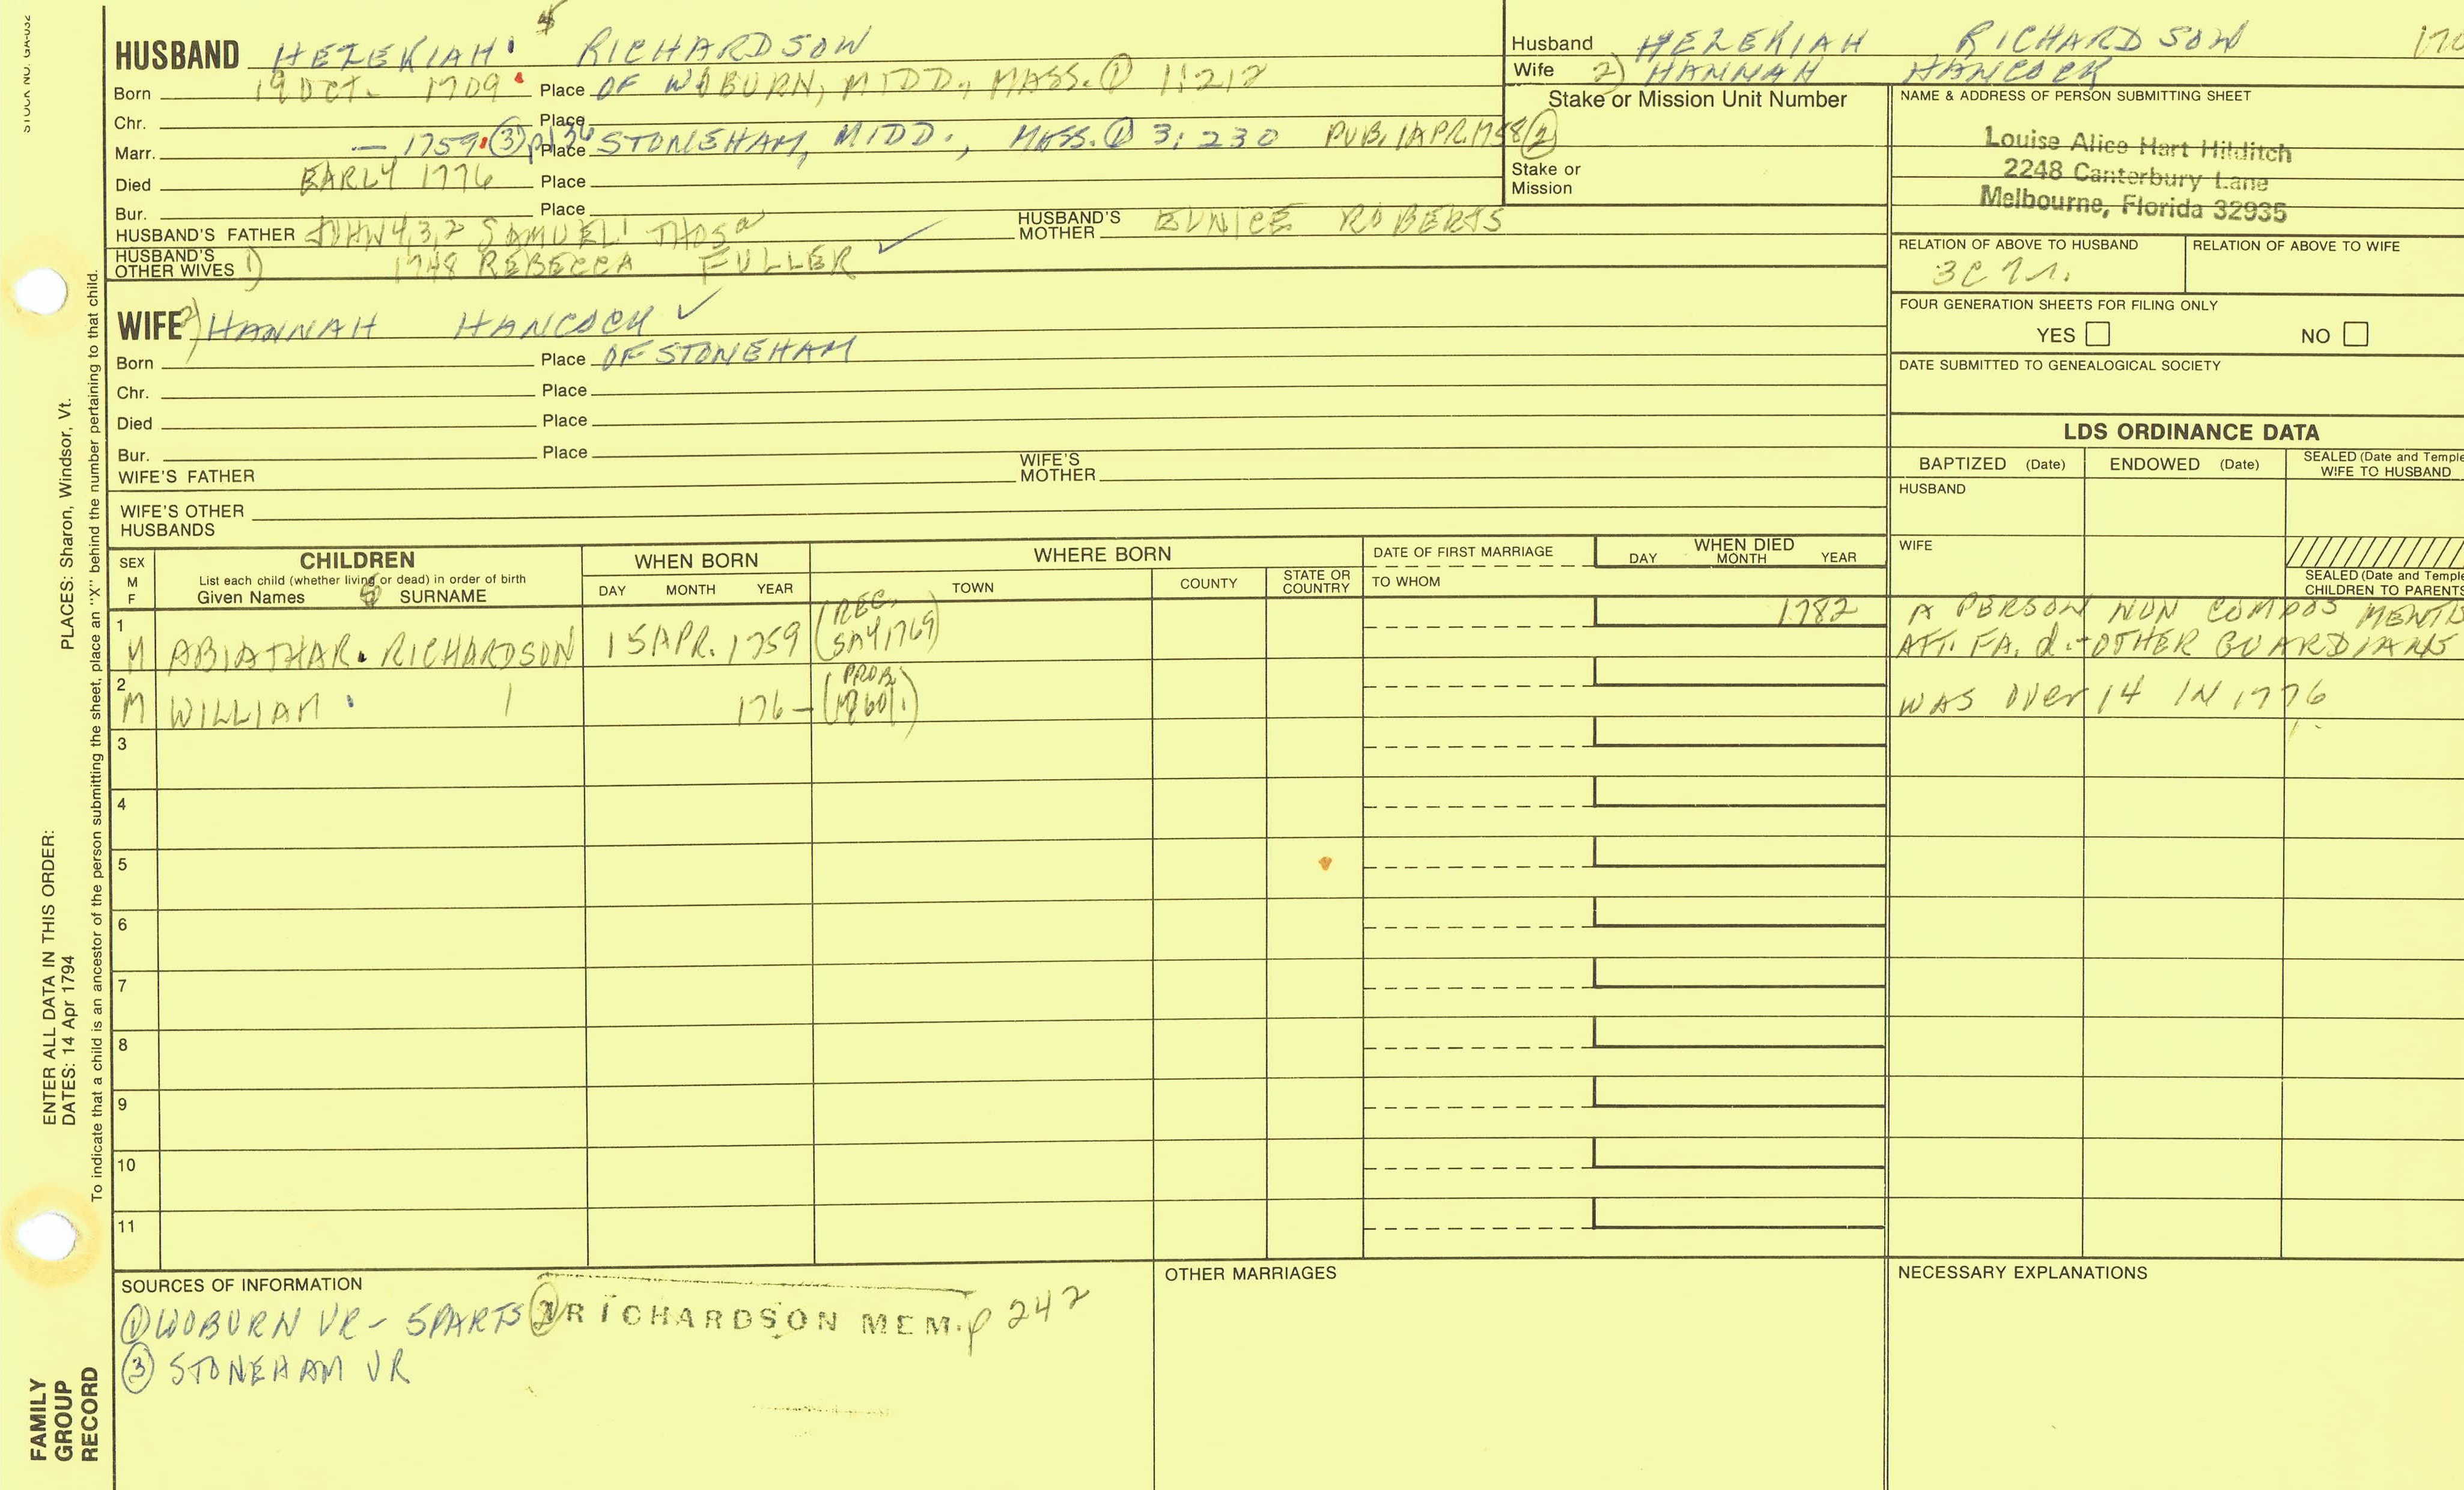 STOCK NO. GA-032
HUSBAND HEZEKIAH RICHARDSON
Born 19 OCT. 1709 Place OF WOBURN, MIDD., MASS. ① 1:212
Chr. Place
Marr. — 1759 ③ p136 Place STONEHAM, MIDD., MASS. ① 3:230 PUB. 1 APR 1758 ②
Died EARLY 1776 Place
Bur. Place
HUSBAND'S FATHER JOHN 4,3,2 SAMUEL1 THOS2
HUSBAND'S MOTHER EUNICE ROBERTS
HUSBAND'S OTHER WIVES 1) 1748 REBECCA FULLER ✓
WIFE 2) HANNAH HANCOCK ✓
Born Place OF STONEHAM
Chr. Place
Died Place
Bur. Place
WIFE'S FATHER
WIFE'S MOTHER
WIFE'S OTHER HUSBANDS
Husband HEZEKIAH RICHARDSON 170
Wife 2) HANNAH HANCOCK
Stake or Mission Unit Number
Stake or Mission
NAME & ADDRESS OF PERSON SUBMITTING SHEET
Louise Alice Hart Hilditch
2248 Canterbury Lane
Melbourne, Florida 32935
RELATION OF ABOVE TO HUSBAND RELATION OF ABOVE TO WIFE
3C 7r.
FOUR GENERATION SHEETS FOR FILING ONLY
YES NO
DATE SUBMITTED TO GENEALOGICAL SOCIETY
LDS ORDINANCE DATA
BAPTIZED (Date) ENDOWED (Date) SEALED (Date and Temple WIFE TO HUSBAND
HUSBAND
WIFE
SEALED (Date and Temple
CHILDREN TO PARENTS
SEX M F
CHILDREN
List each child (whether living or dead) in order of birth
Given Names SURNAME
WHEN BORN
DAY MONTH YEAR
WHERE BORN
TOWN COUNTY STATE OR COUNTRY
DATE OF FIRST MARRIAGE
TO WHOM
WHEN DIED
DAY MONTH YEAR
1 M ABIATHAR RICHARDSON 15 APR. 1759 (REC. SAY 1769) 1782 A PERSON NON COMPOS MENTIS
AFT. FA. d. - OTHER GUARDIANS
2 M WILLIAM 176— (PROB. 1760) WAS OVER 14 IN 1776
3
4
5
6
7
8
9
10
11
SOURCES OF INFORMATION
① WOBURN VR - 5 PARTS ② RICHARDSON MEM. p 242
③ STONEHAM VR
OTHER MARRIAGES
NECESSARY EXPLANATIONS
PLACES: Sharon, Windsor, Vt.
To indicate that a child is an ancestor of the person submitting the sheet, place an "X" behind the number pertaining to that child.
ENTER ALL DATA IN THIS ORDER:
DATES: 14 Apr 1794
FAMILY
GROUP
RECORD